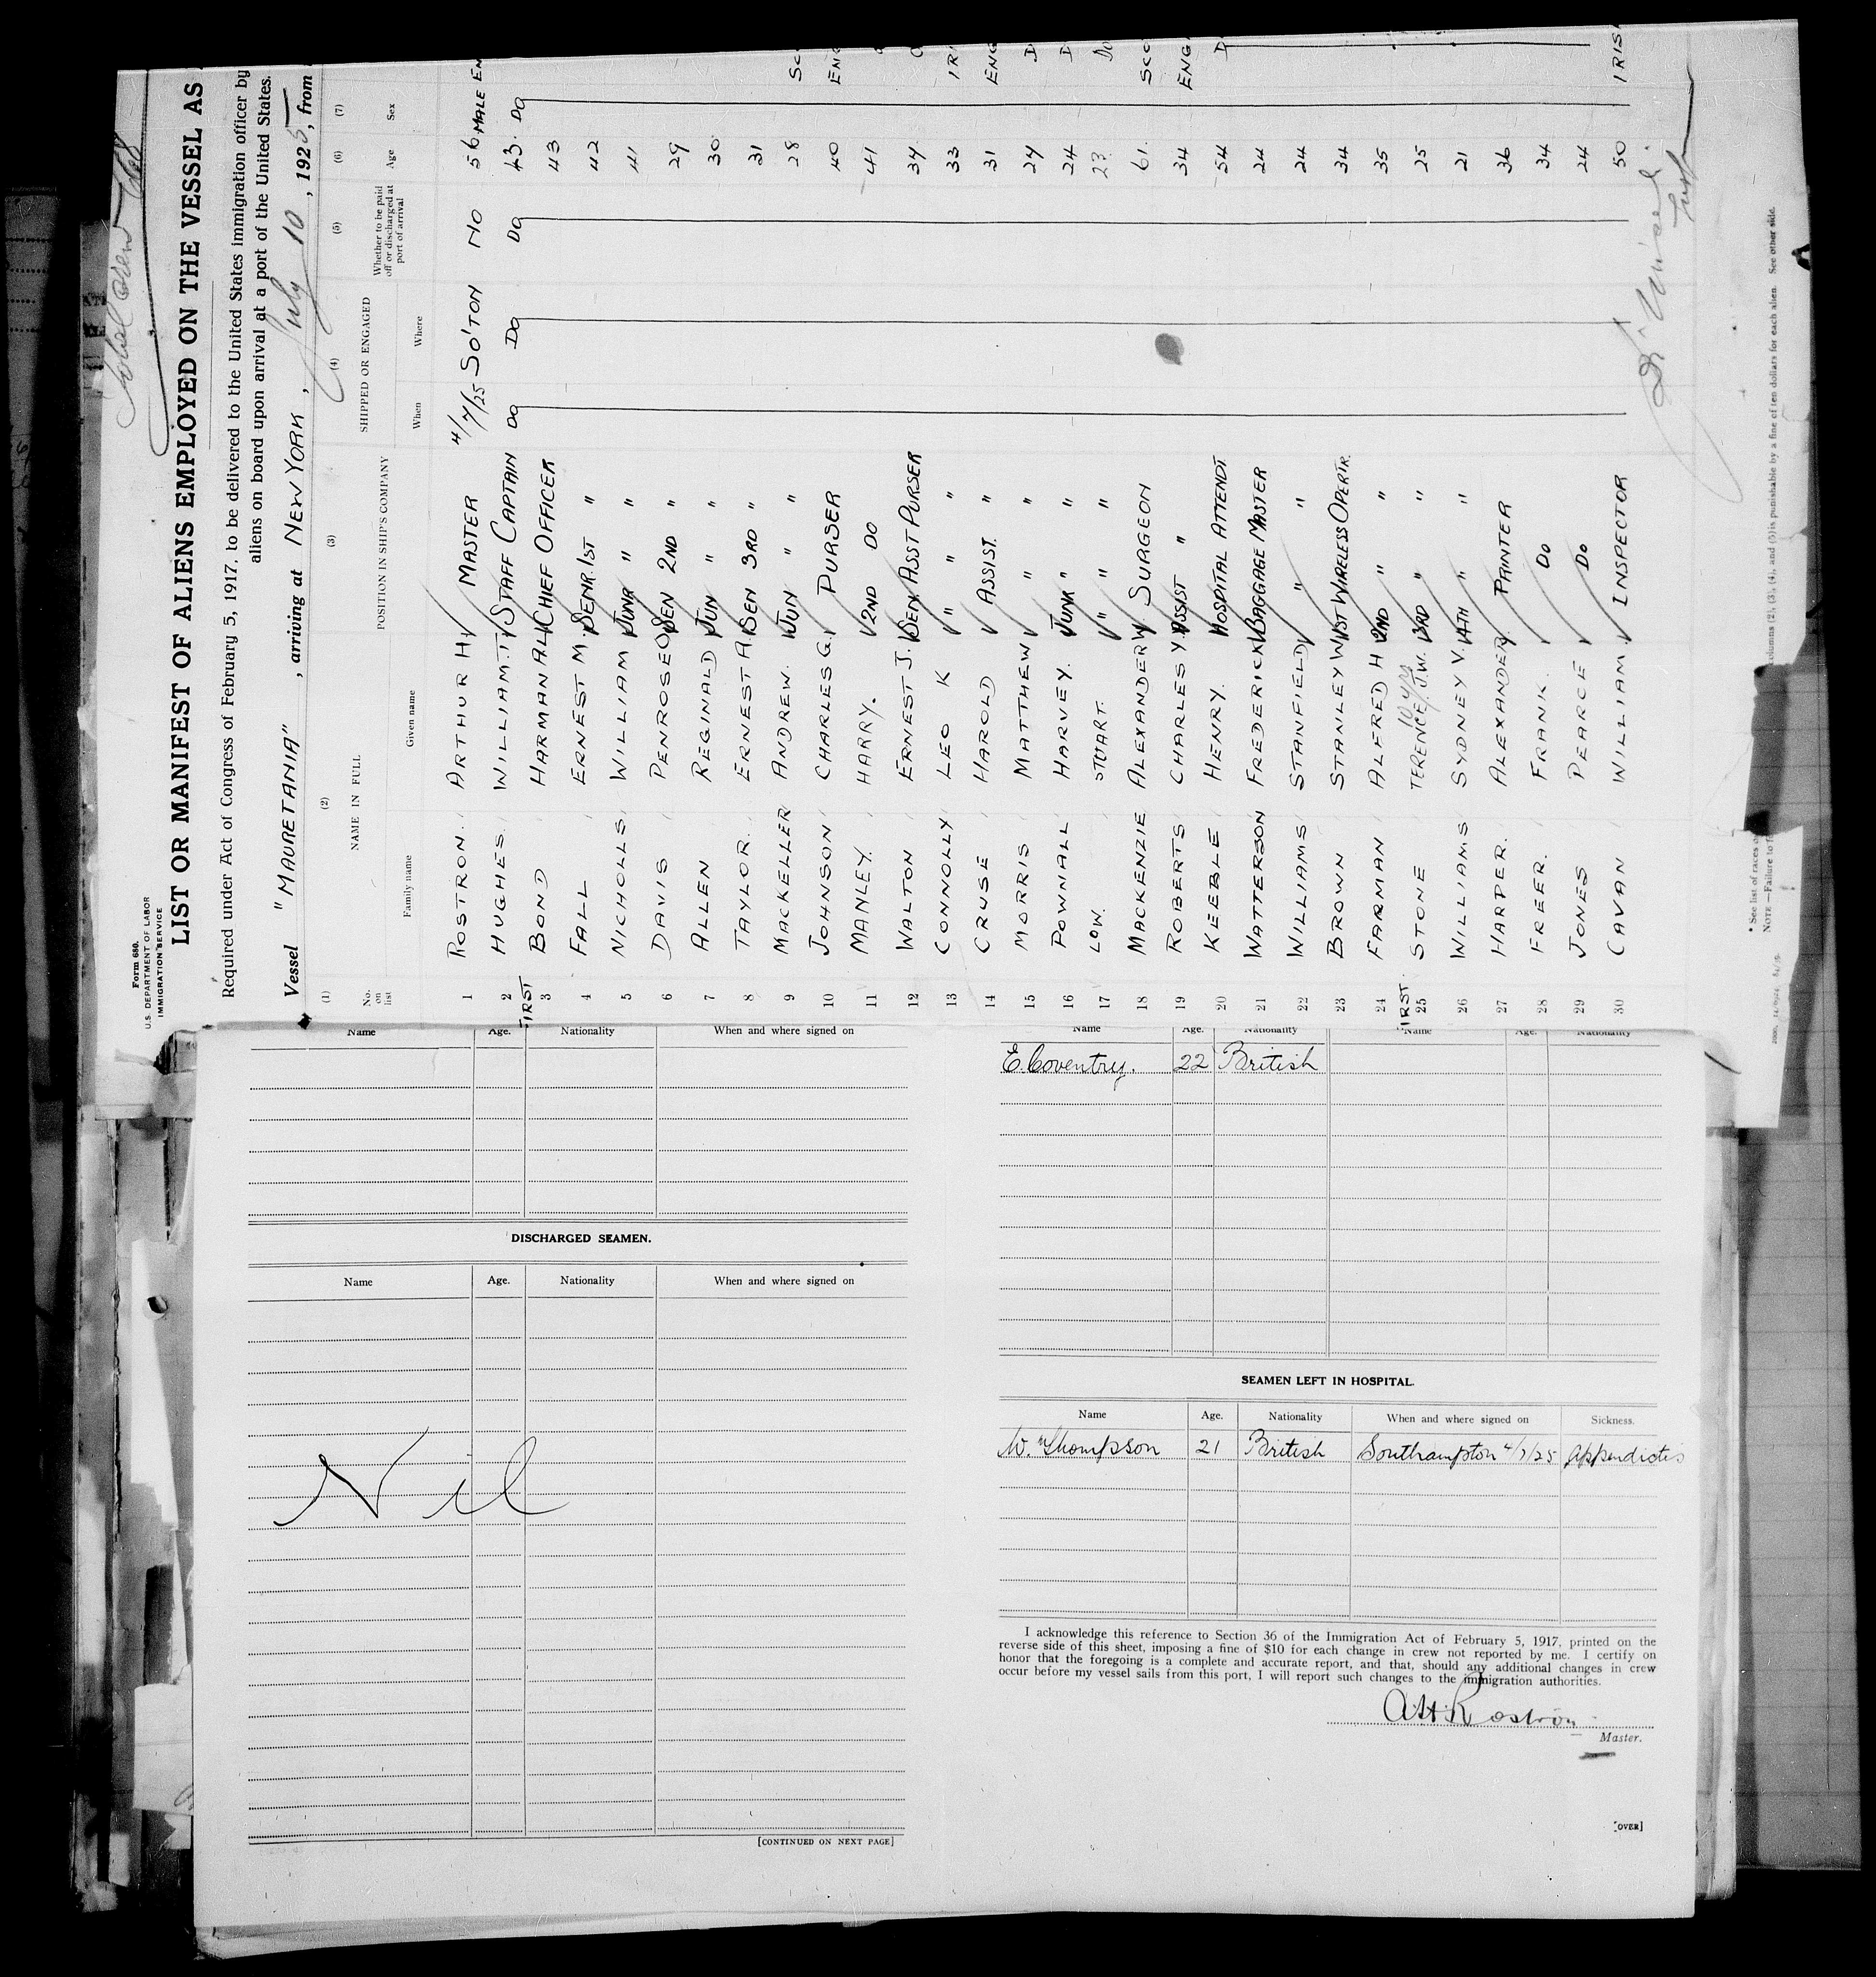 Form 680.
U.S. DEPARTMENT OF LABOR
IMMIGRATION SERVICE
LIST OR MANIFEST OF ALIENS EMPLOYED ON THE VESSEL AS
Required under Act of Congress of February 5, 1917, to be delivered to the United States immigration officer by
aliens on board upon arrival at a port of the United States.
Vessel "MAURETANIA", arriving at NEW YORK, July 10, 1925, from
(1) (2) (3) (4) (5) (6) (7)
No. on list NAME IN FULL POSITION IN SHIP'S COMPANY SHIPPED OR ENGAGED Whether to be paid off or discharged at port of arrival Age Sex
Family name Given name When Where
1 ROSTRON. ARTHUR H. MASTER 4/7/25 SO'TON NO 56 MALE EN
2 HUGHES. WILLIAM.T. STAFF CAPTAIN DO DO DO 43. DO
FIRST
3 BOND HARMAN A.L. CHIEF OFFICER 43
4 FALL ERNEST M. SENR. 1ST " 42
5 NICHOLLS WILLIAM JUNR " " 41
6 DAVIS PENROSE O SEN 2ND " 29
7 ALLEN REGINALD JUN " " 30
8 TAYLOR. ERNEST A. SEN 3RD " 31
9 MACKELLER ANDREW. JUN " " 28 SC
10 JOHNSON CHARLES G. PURSER 40 ENG
11 MANLEY. HARRY. 2ND DO 41
12 WALTON ERNEST J. SEN. ASST PURSER 34
13 CONNOLLY LEO K " " " 33 IR
14 CRUSE HAROLD ASSIST. " 31 ENG
15 MORRIS MATTHEW " " 24 D
16 POWNALL HARVEY. JUNR " " 24 D
17 LOW. STUART. " " " 23 Do
18 MACKENZIE ALEXANDER W SURGEON 61. SCO
19 ROBERTS CHARLES Y. ASSIST " 34 ENG
20 KEEBLE HENRY. HOSPITAL ATTENDT 54 D
21 WATTERSON FREDERICK BAGGAGE MASTER 24
22 WILLIAMS STANFIELD " " 24
23 BROWN STANLEY W. 1ST WIRELESS OPERTR. 34
24 FARMAN ALFRED H 2ND " " 35
FIRST
25 STONE TERENCE J.W. 3RD " " 25
26 WILLIAMS SYDNEY V. 4TH " " 21
27 HARPER. ALEXANDER PRINTER 36
28 FREER. FRANK. DO 34
29 JONES PEARCE DO 24
30 CAVAN WILLIAM. INSPECTOR 50 IRIS
* See list of races o
NOTE.—Failure to f
columns (2), (3), (4), and (5) is punishable by a fine of ten dollars for each alien. See other side.
Name Age. Nationality When and where signed on
DISCHARGED SEAMEN.
Name Age. Nationality When and where signed on
Nil
[CONTINUED ON NEXT PAGE]
Name Age. Nationality Name Age. Nationality
E. Coventry. 22 British
SEAMEN LEFT IN HOSPITAL.
Name Age. Nationality When and where signed on Sickness.
W. Thompson 21 British Southampton 4/7/25 appendictis
I acknowledge this reference to Section 36 of the Immigration Act of February 5, 1917, printed on the
reverse side of this sheet, imposing a fine of $10 for each change in crew not reported by me. I certify on
honor that the foregoing is a complete and accurate report, and that, should any additional changes in crew
occur before my vessel sails from this port, I will report such changes to the immigration authorities.
A.H. Rostron
Master.
[OVER]